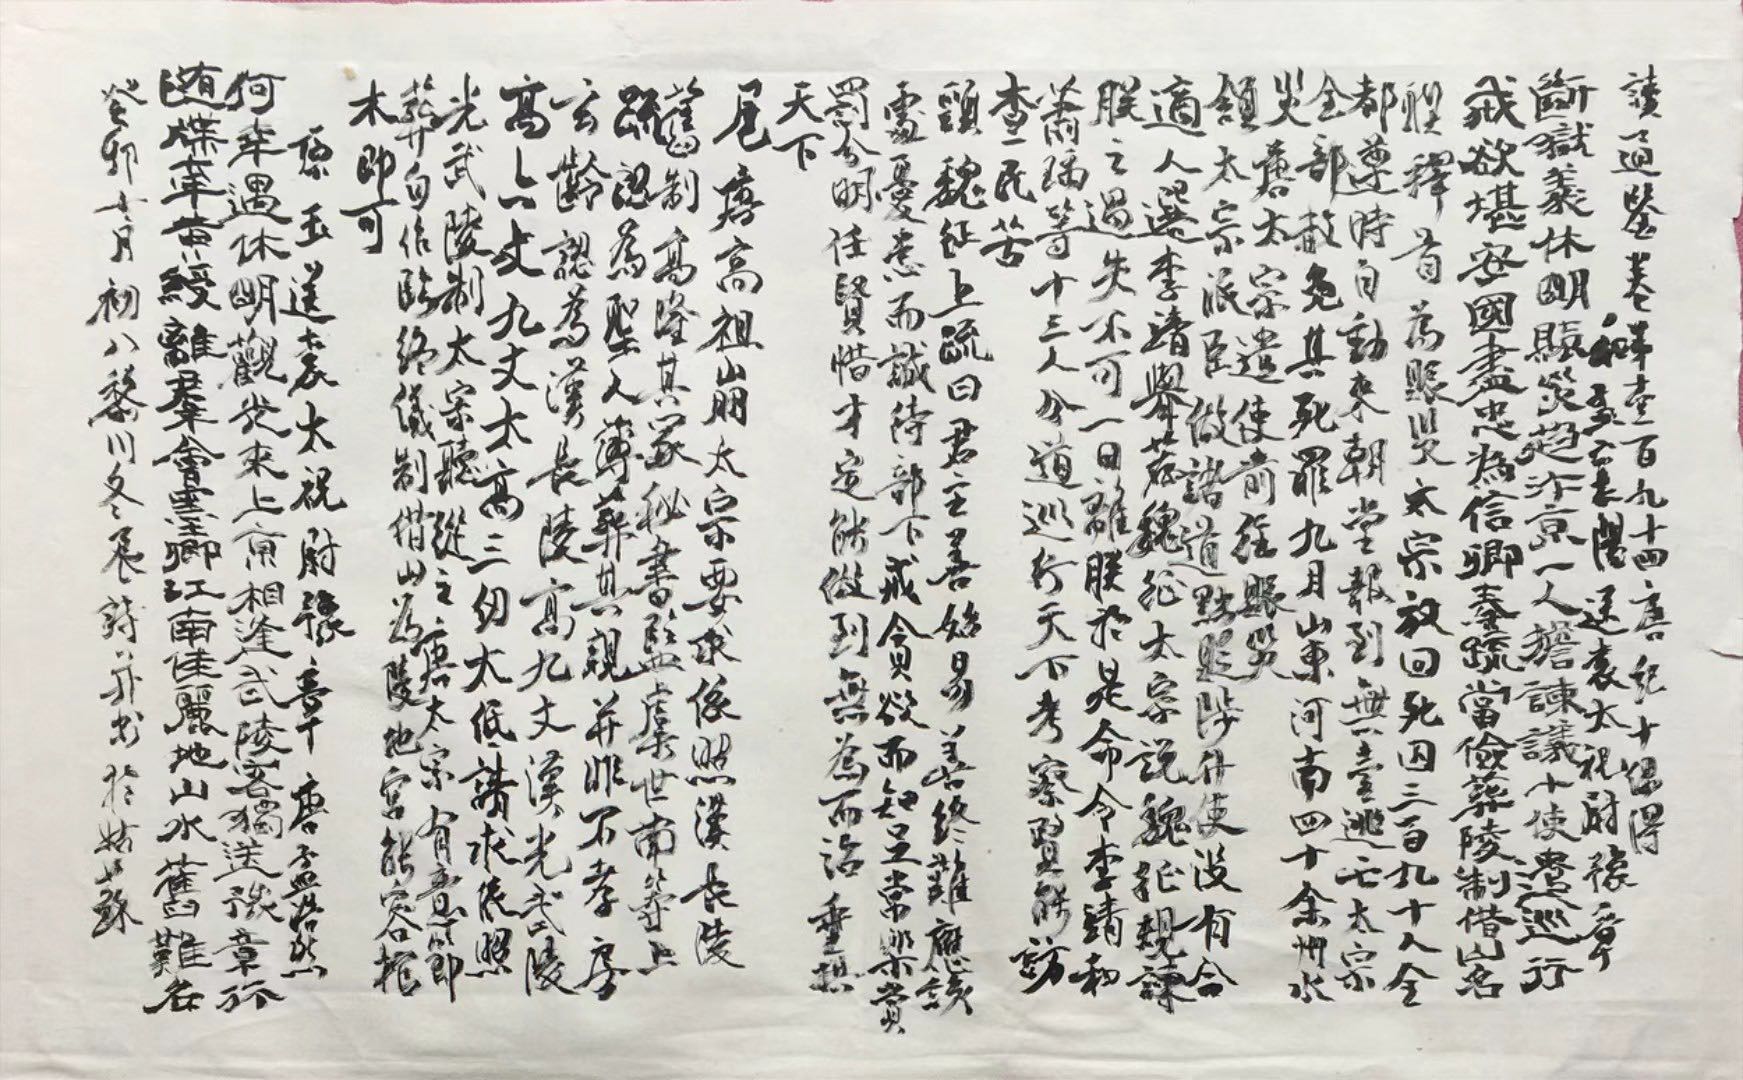 讀通鑒卷第壹百九十四唐紀十偶得
和孟浩然陽送袁太祝尉豫章
斷獄義休明賑災趙亦京一人擔諫議十使費巡行
戒欲堪安國盡忠為信卿奏疏當儉葬陵制借山名
釋首為賑災太宗放回死囚三百九十人全
都遵時自動來朝堂報到無壹逃亡太宗
全部赦免其死罪九月山東河南四十余州水
災唐太宗遣使前往賑災
頷太宗派臣做諸道黜陟升使沒有合
適人選李靖舉荐魏征太宗說魏征規諫
朕之過失不可一日離朕於是命令李靖和
蕭瑀等十三人分道巡行天下考察賢能訪
查民苦
頸魏征上疏曰君主善始易善終難應該
處憂患而誠待部下戒貪欲而知足常樂賞
罰分明任賢惜才定能做到無為而治垂拱
天下
尾唐高祖山崩太宗要求依照漢長陵
舊制高隆其冢秘書監虞世南等上
疏認為聖人薄葬其親并非不孝房
玄齡認為漢長陵高九丈漢光武陵
高六丈九丈太高三仞太低請求依照
光武陵制太宗聽從之唐太宗有意節
葬自作臨終儀制借山為陵地宮能容棺
木即可
原玉送袁太祝尉豫章 唐孟浩然
何幸遇休明觀光來上京相逢武陵客獨送豫章行
隨牒牽黃綬離群會墨卿江南佳麗地山水舊難名
癸卯十月初八黎川冬晨詩并書於姑蘇